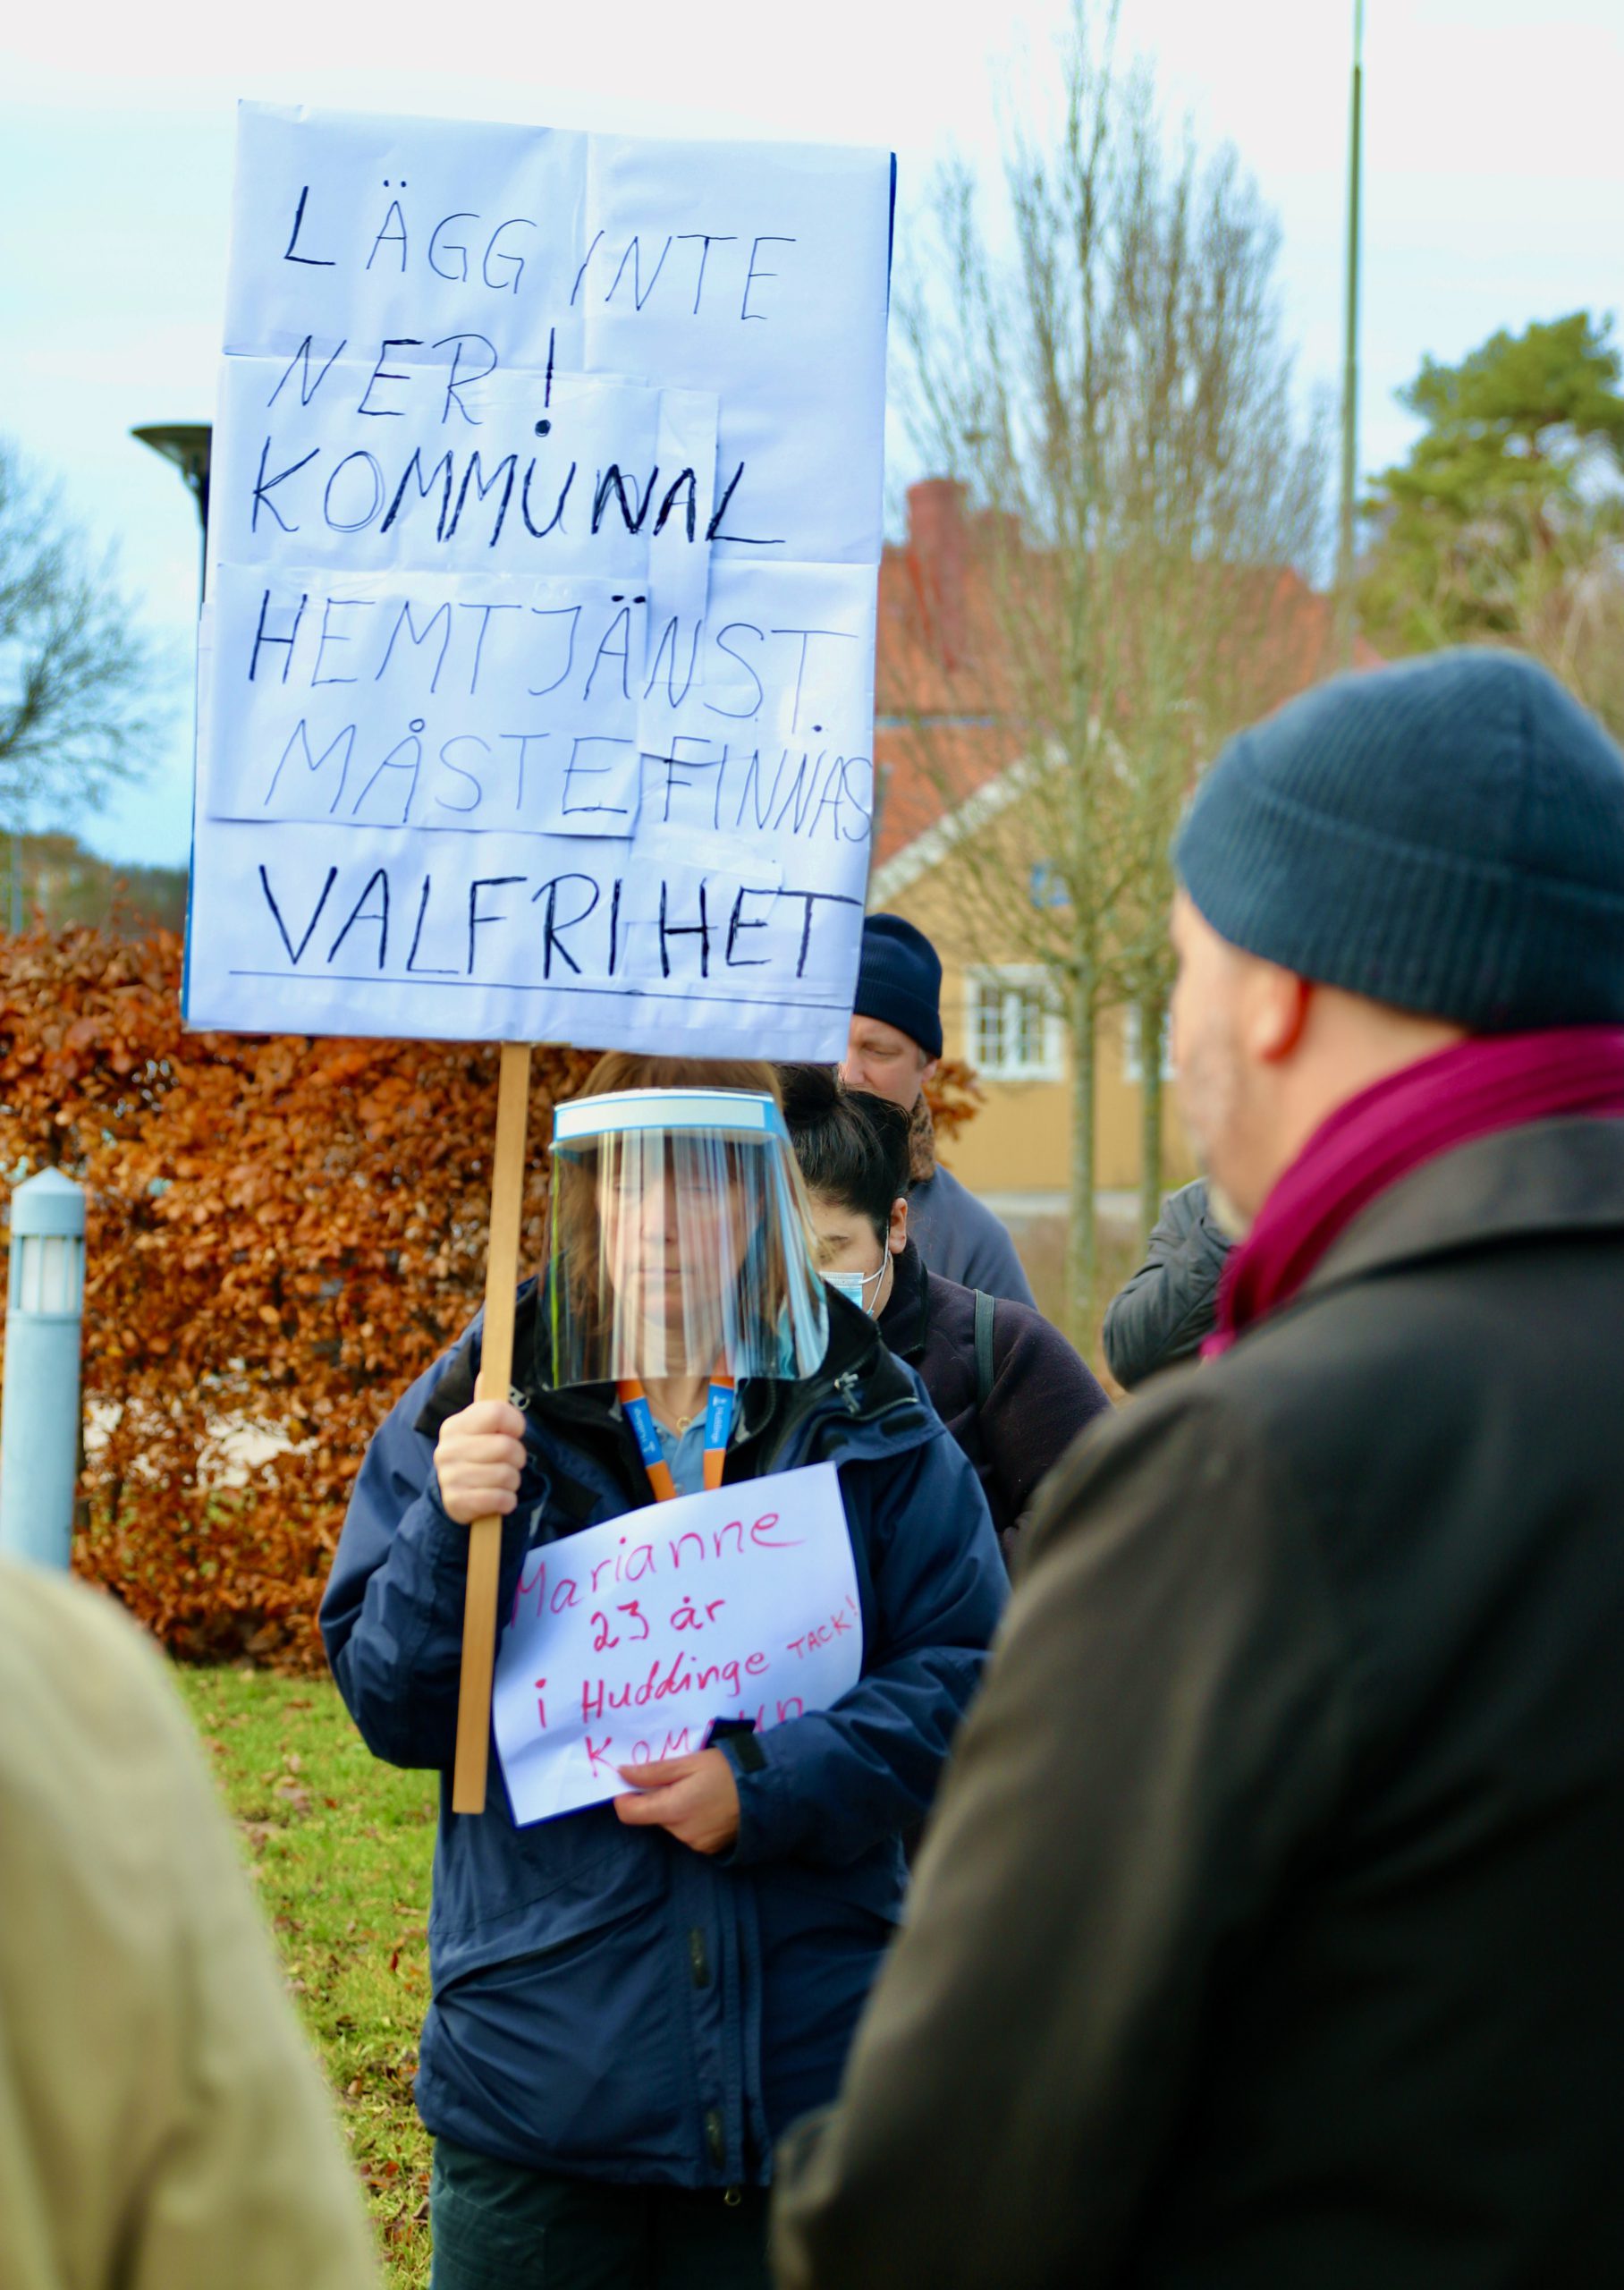 LÄGG INTE
NER!
KOMMUNAL
HEMTJÄNST.
MÅSTE FINNAS
VALFRIHET
Marianne
23 år
i Huddinge TACK!
Huddinge